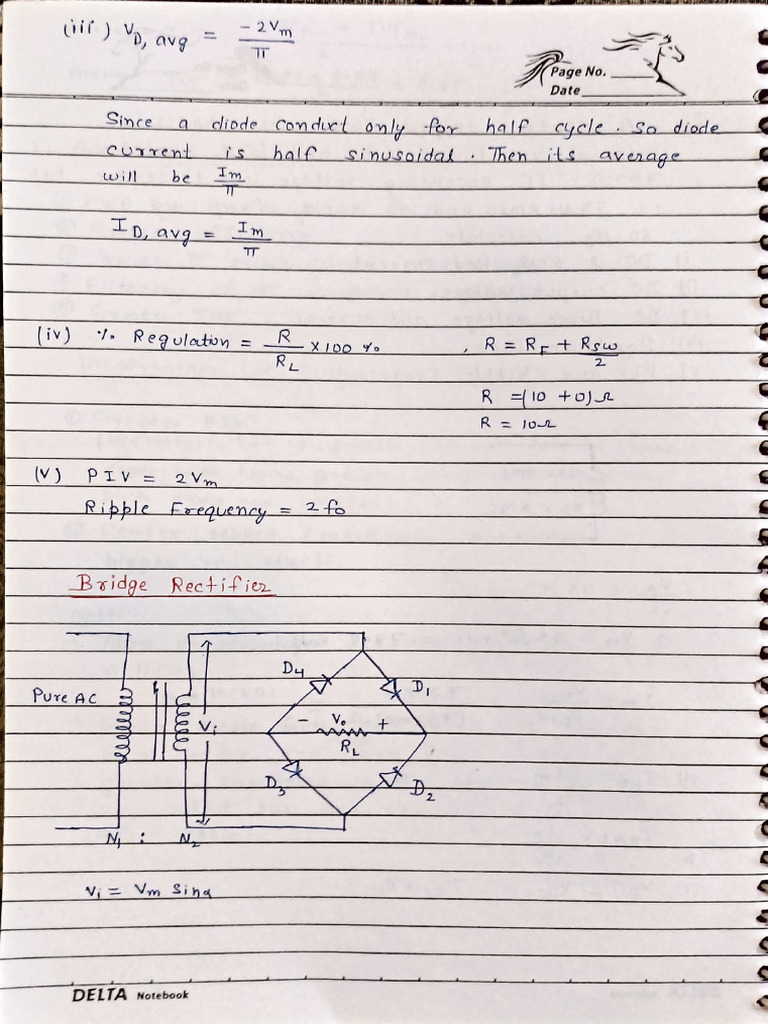 (iii) VD, avg = -2Vm/π
Page No.
Date
Since a diode conduct only for half cycle. so diode
current is half sinusoidal. Then its average
will be Im/π
ID, avg = Im/π
(iv) % Regulation = R/RL × 100 % , R = RF + RSW/2
R = (10 + 0) Ω
R = 10Ω
(v) PIV = 2Vm
Ripple Frequency = 2fo
Bridge Rectifier
D4 D1
Pure AC Vi - Vo +
RL
D3 D2
N1 : N2
Vi = Vm Sinα
DELTA Notebook